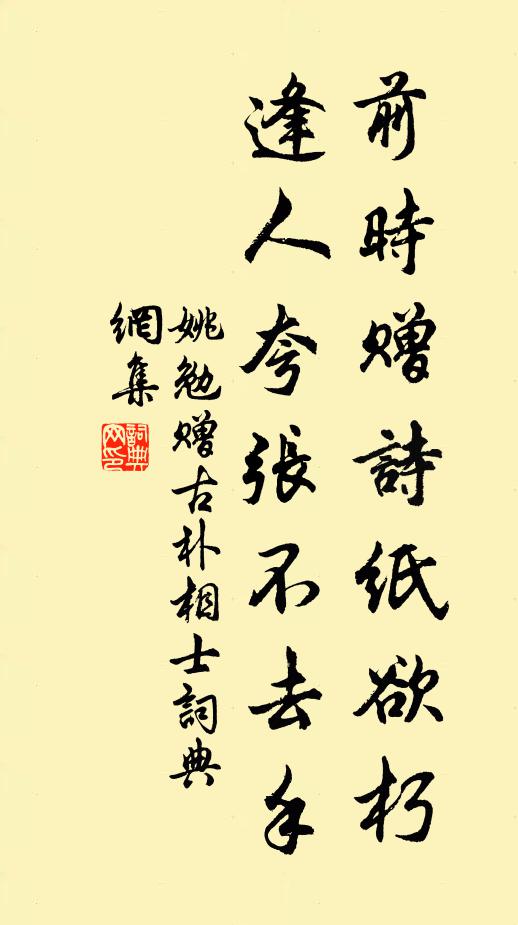 前時贈詩紙欲朽
逢人夸張不去手
姚勉贈古朴相士詞典
網集
詞典
网印